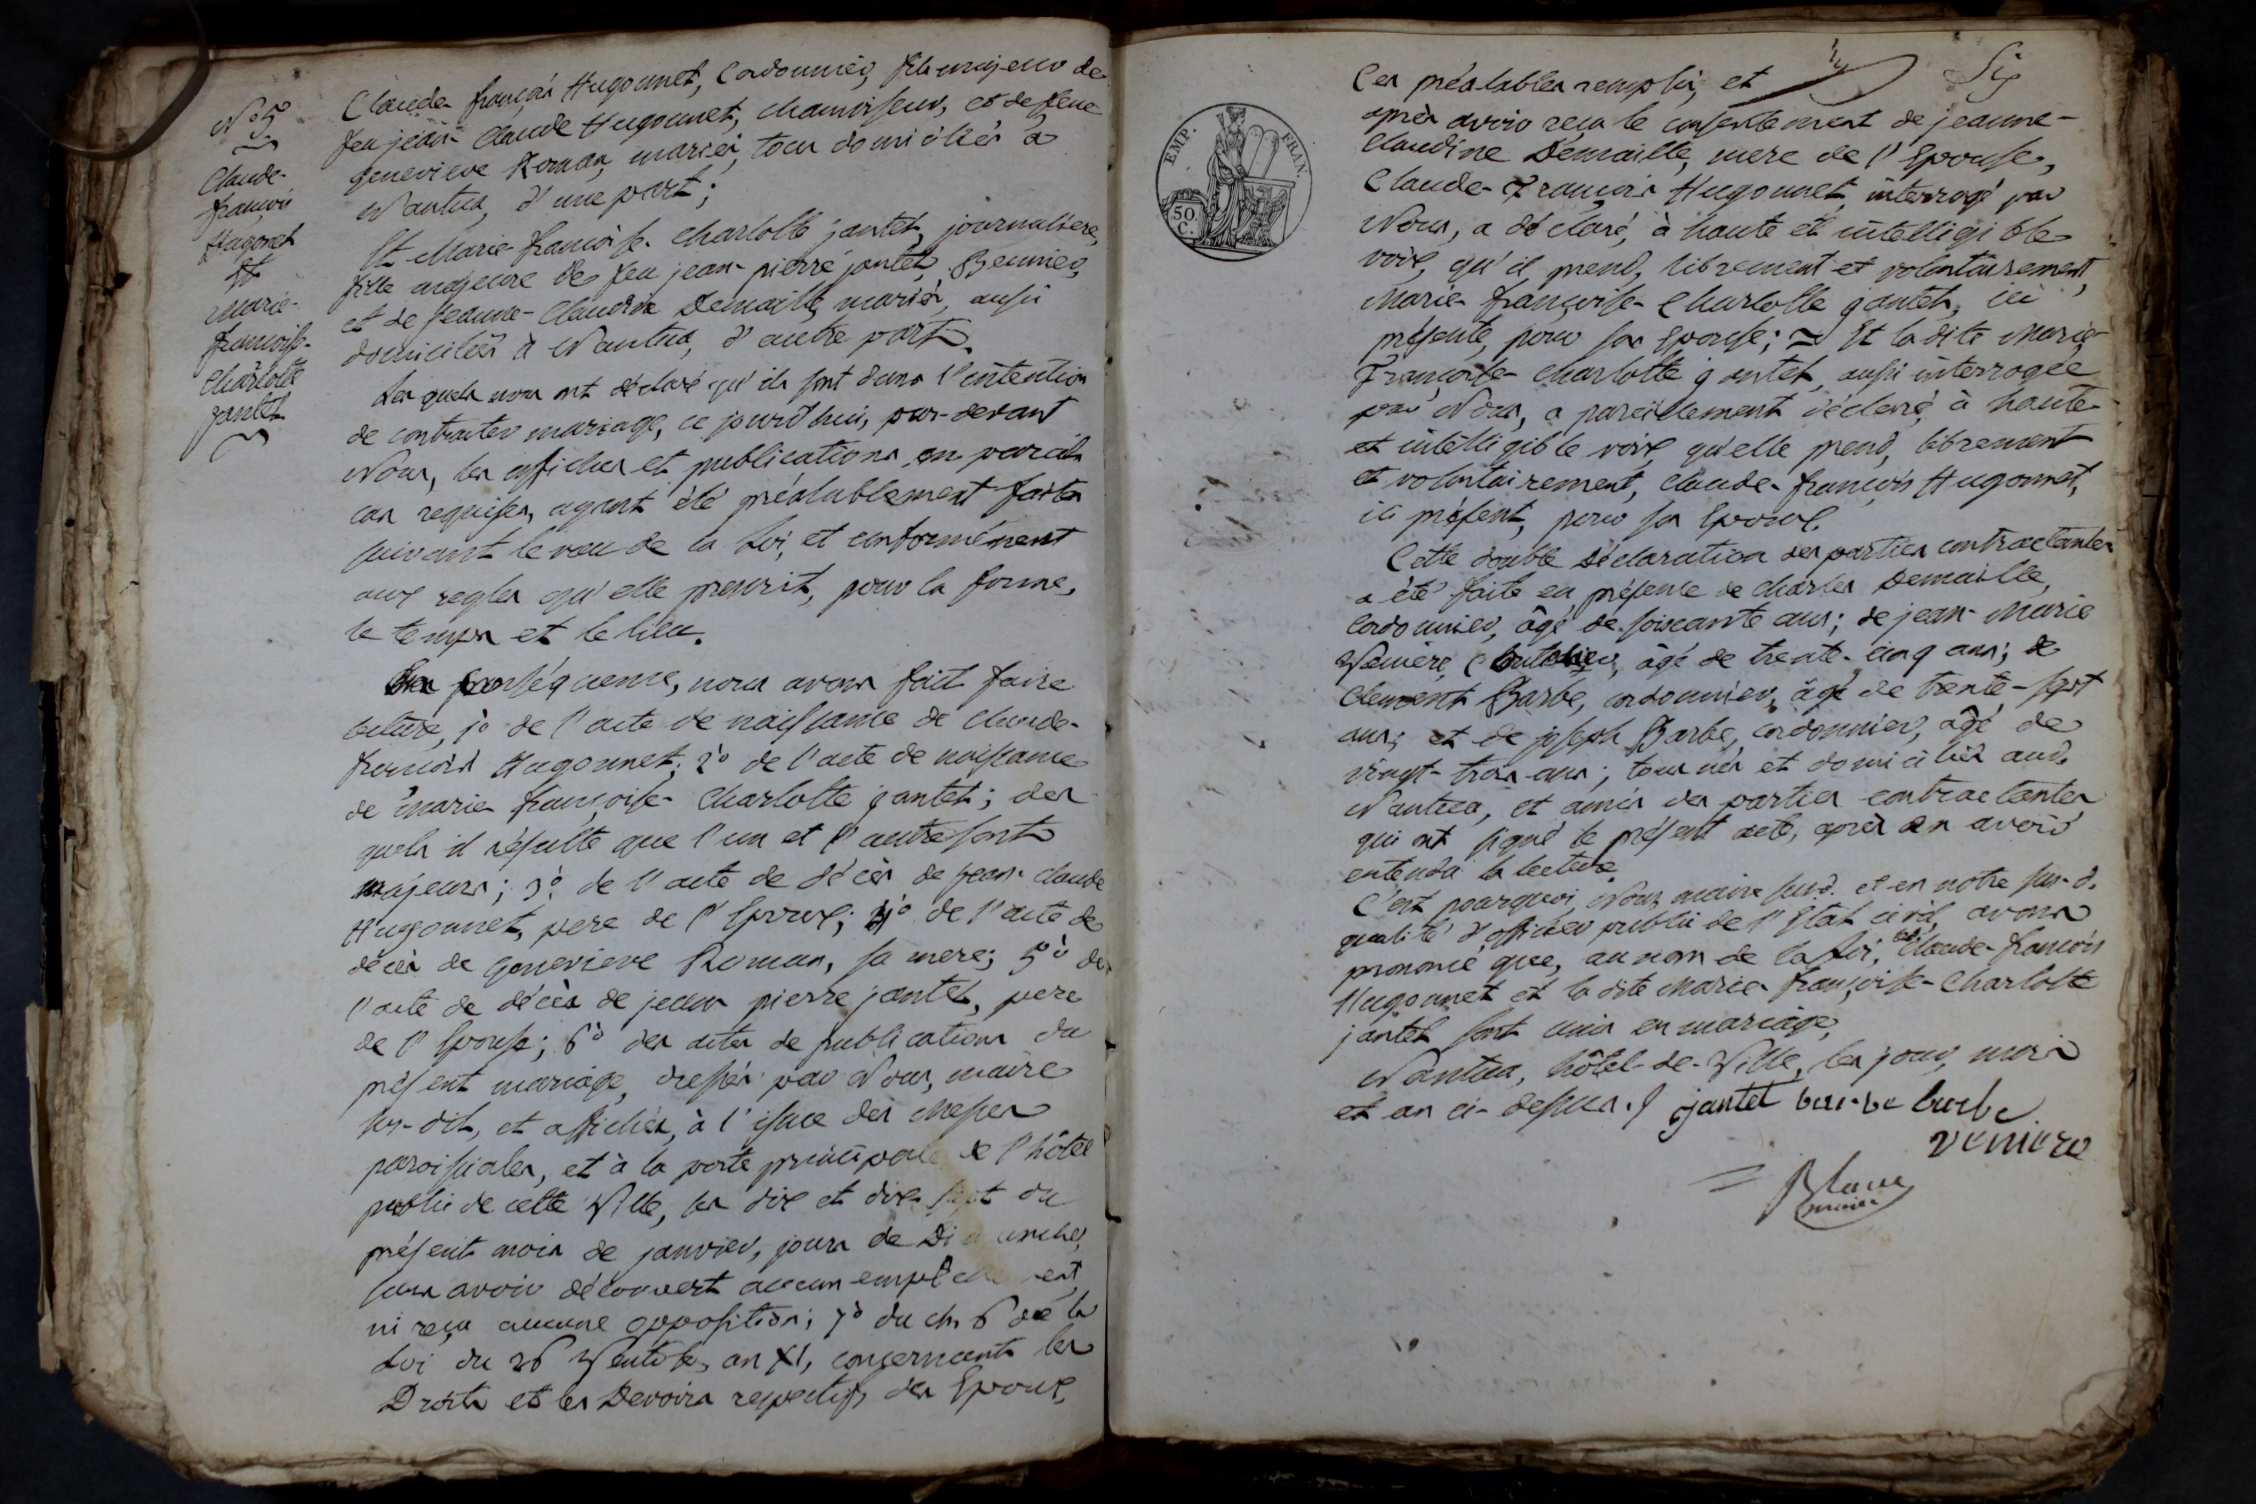 N.° 5.
Claude-
françois
Hugonet
Et
Marie-
francoise-
Charlotte
jantet
Claude françois Hugonnet, Cordonnier, fils majeur de
feu jean-Claude Hugonnet, chamoiseur, et de feue
genevieve Roman, mariés, tous domiciliés à
Nantua, d'une part;
Et Marie francoise-charlotte jantet, journaliere,
fille majeure de feu jean-pierre jantet,
et de jeanne-Claudine Demaille, mariés, aussi
domiciliés à Nantua, d'autre part.
Lesquels nous ont déclaré qu'ils sont dans l'intention
de contracter mariage, ce jourd'hui, par-devant
Nous, les affiches et publications, en pareils
cas requises, ayant été préalablement faites
suivant le vœu de la Loi, et conformément
aux regles qu'elle prescrit, pour la forme,
le temps et le lieu.
En conséquence, nous avons fait faire
lecture, 1° de l'acte de naissance de Claude-
françois Hugonnet; 2° de l'acte de naissance
de Marie françoise-Charlotte jantet; des
quels il résulte que l'un et l'autre sont
majeurs; 3° de l'acte de décès de jean-claude
Hugonnet, pere de l'Epoux; 4° de l'acte de
décès de Genevieve Roman, sa mere; 5° de
l'acte de décès de jean pierre jantet, pere
de l'Epouse; 6° des actes de publications du
présent mariage, dressés par Nous, maire
sus-dit, et affichés, à l'issue des Messes
paroissiales, et à la porte principale de l'hôtel
public de cette Ville, les dix et dix-sept du
présent mois de janvier, jours de Dimanche,
sans avoir découvert aucun empêchement,
ni reçu aucune opposition; 7° du ch. 6 de la
Loi du 26 Ventôse, an XI, concernant les
Droits et les Devoirs respectifs des Epoux.
Six
EMP. FRAN.
50.
C.
Ces préalables remplis, et
après avoir reçu le consentement de jeanne-
Claudine Demaille, mere de l'Epouse,
Claude-François Hugonnet, interrogé par
Nous, a déclaré, à haute et intelligible
voix, qu'il prend, librement et volontairement,
Marie-françoise-Charlotte jantet, ici
présente, pour son Epouse; Et la dite Marie-
Françoise-Charlotte jantet, aussi interrogée
par Nous, a pareillement déclaré, à haute
et intelligible voix, qu'elle prend, librement
et volontairement, Claude-françois Hugonnet,
ici présent, pour son Epoux.
Cette double Déclaration des parties contractantes
a été faite en présence de Charles Demaille,
Cordonnier, âgé de soixante ans; de jean-Marie
Veniere, âgé de trente-cinq ans; de
Clement Barbe, cordonnier, âgé de trente-sept
ans; et de joseph Barbe, cordonnier, âgé de
vingt-trois ans; tous nés et domiciliés aud.
Nantua, et amis des parties contractantes
qui ont signé le présent acte, après en avoir
entendu la lecture.
C'est pourquoi, Nous, maire susd. et en notre sus-d.
qualité d'officier public de l'Etat civil, avons
prononcé que, au nom de la Loi, led. Claude-françois
Hugonnet et la dite Marie-françoise-Charlotte
jantet sont unis en mariage.
Nantua, hôtel-de-Ville, les jour, mois
et an ci-dessus. jantet barbe barbe
veniere
maire